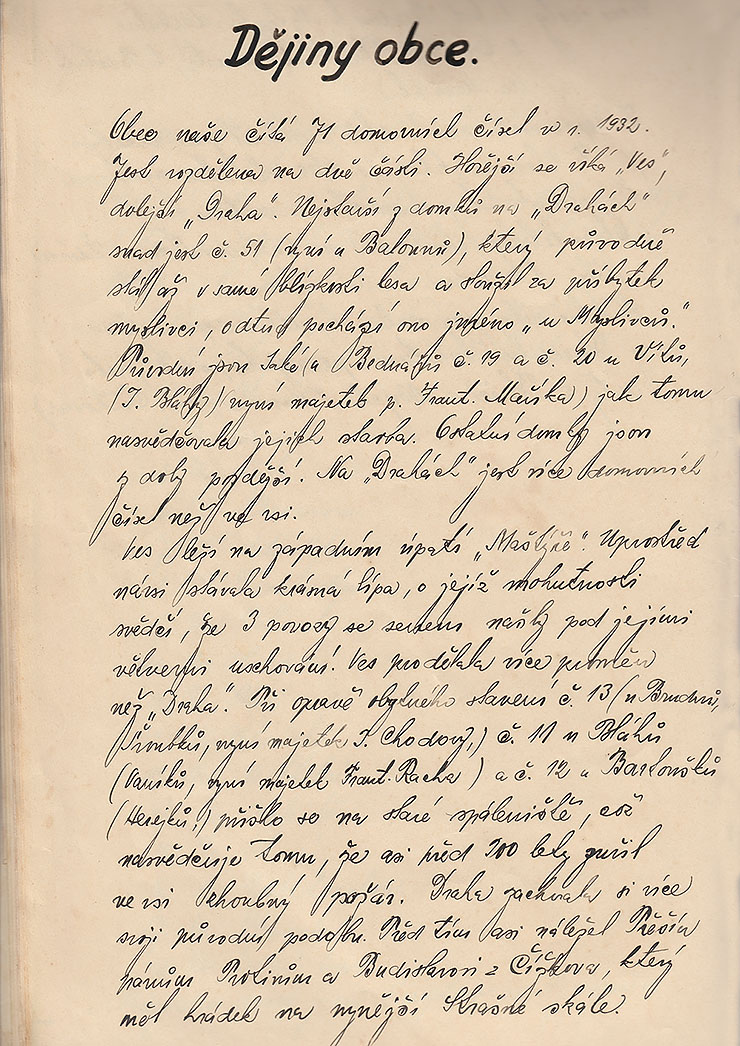 Dějiny obce.
Obec naše čítá 71 domovních čísel v r. 1932.
Jest rozdělena na dvě části. Hořejší se říká „Ves",
dolejší „Draha". Nejstarší z domků na „Drahách"
snad jest č. 51 (nyní u Balounů), který původně
stál až v samé blízkosti lesa a sloužil za příbytek
myslivci, odtud pochází ono jméno „u Myslivců."
Původní jsou také (u Bednářů č. 19 a č. 20 u Vítů,
(J. Bláhy) (nyní majetek p. Frant. Maříka) jak tomu
nasvědčovala jejich stavba. Ostatní domky jsou
z doby pozdější. Na „Drahách" jest více domovních
čísel než ve vsi.
Ves leží na západním úpatí „Maštýře". Uprostřed
návsi stávala krásná lípa, o jejíž mohutnosti
svědčí, že 3 povozy se senem našly pod jejími
větvemi uschování. Ves prodělala více proměn
než „Draha". Při opravě obytného stavení č. 13 (u
nyní majetek J. Chodory,) č. 11 u Bláhů
(Vaníků, nyní majetek Frant. Racha) a č. 12 u Bartoušků
přišlo se na staré spáleniště, což
nasvědčuje tomu, že asi před 200 lety zuřil
ve vsi zhoubný požár. Draha zachovala si více
svoji původní podobu. Před tím asi náležel Přešín
pánům Protivům a Budislavovi z Čížkova, který
měl hrádek na nynější Strašné skále.